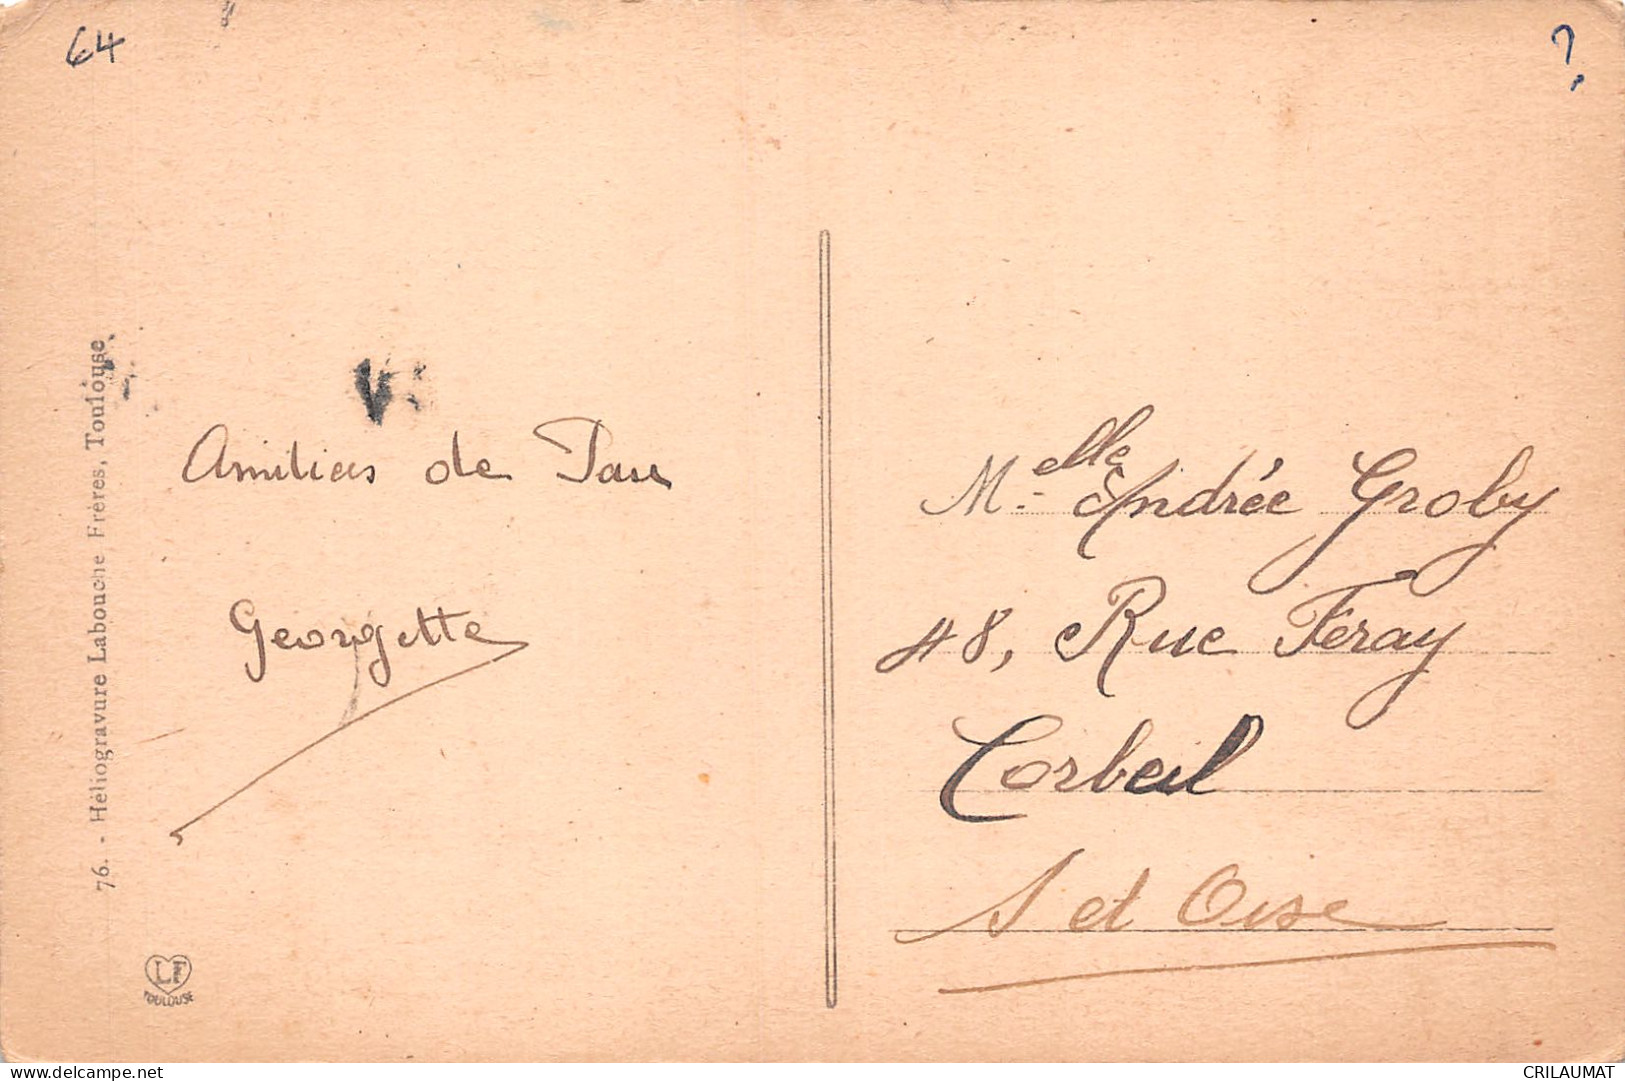 64
?
Amitiés de Pau
Georgette
Melle Andrée Groby
48, Rue Feray
Corbeil
S et Oise
76. - Héliogravure Labouche Frères, Toulouse
LF
TOULOUSE
www.delcampe.net
CRILAUMAT